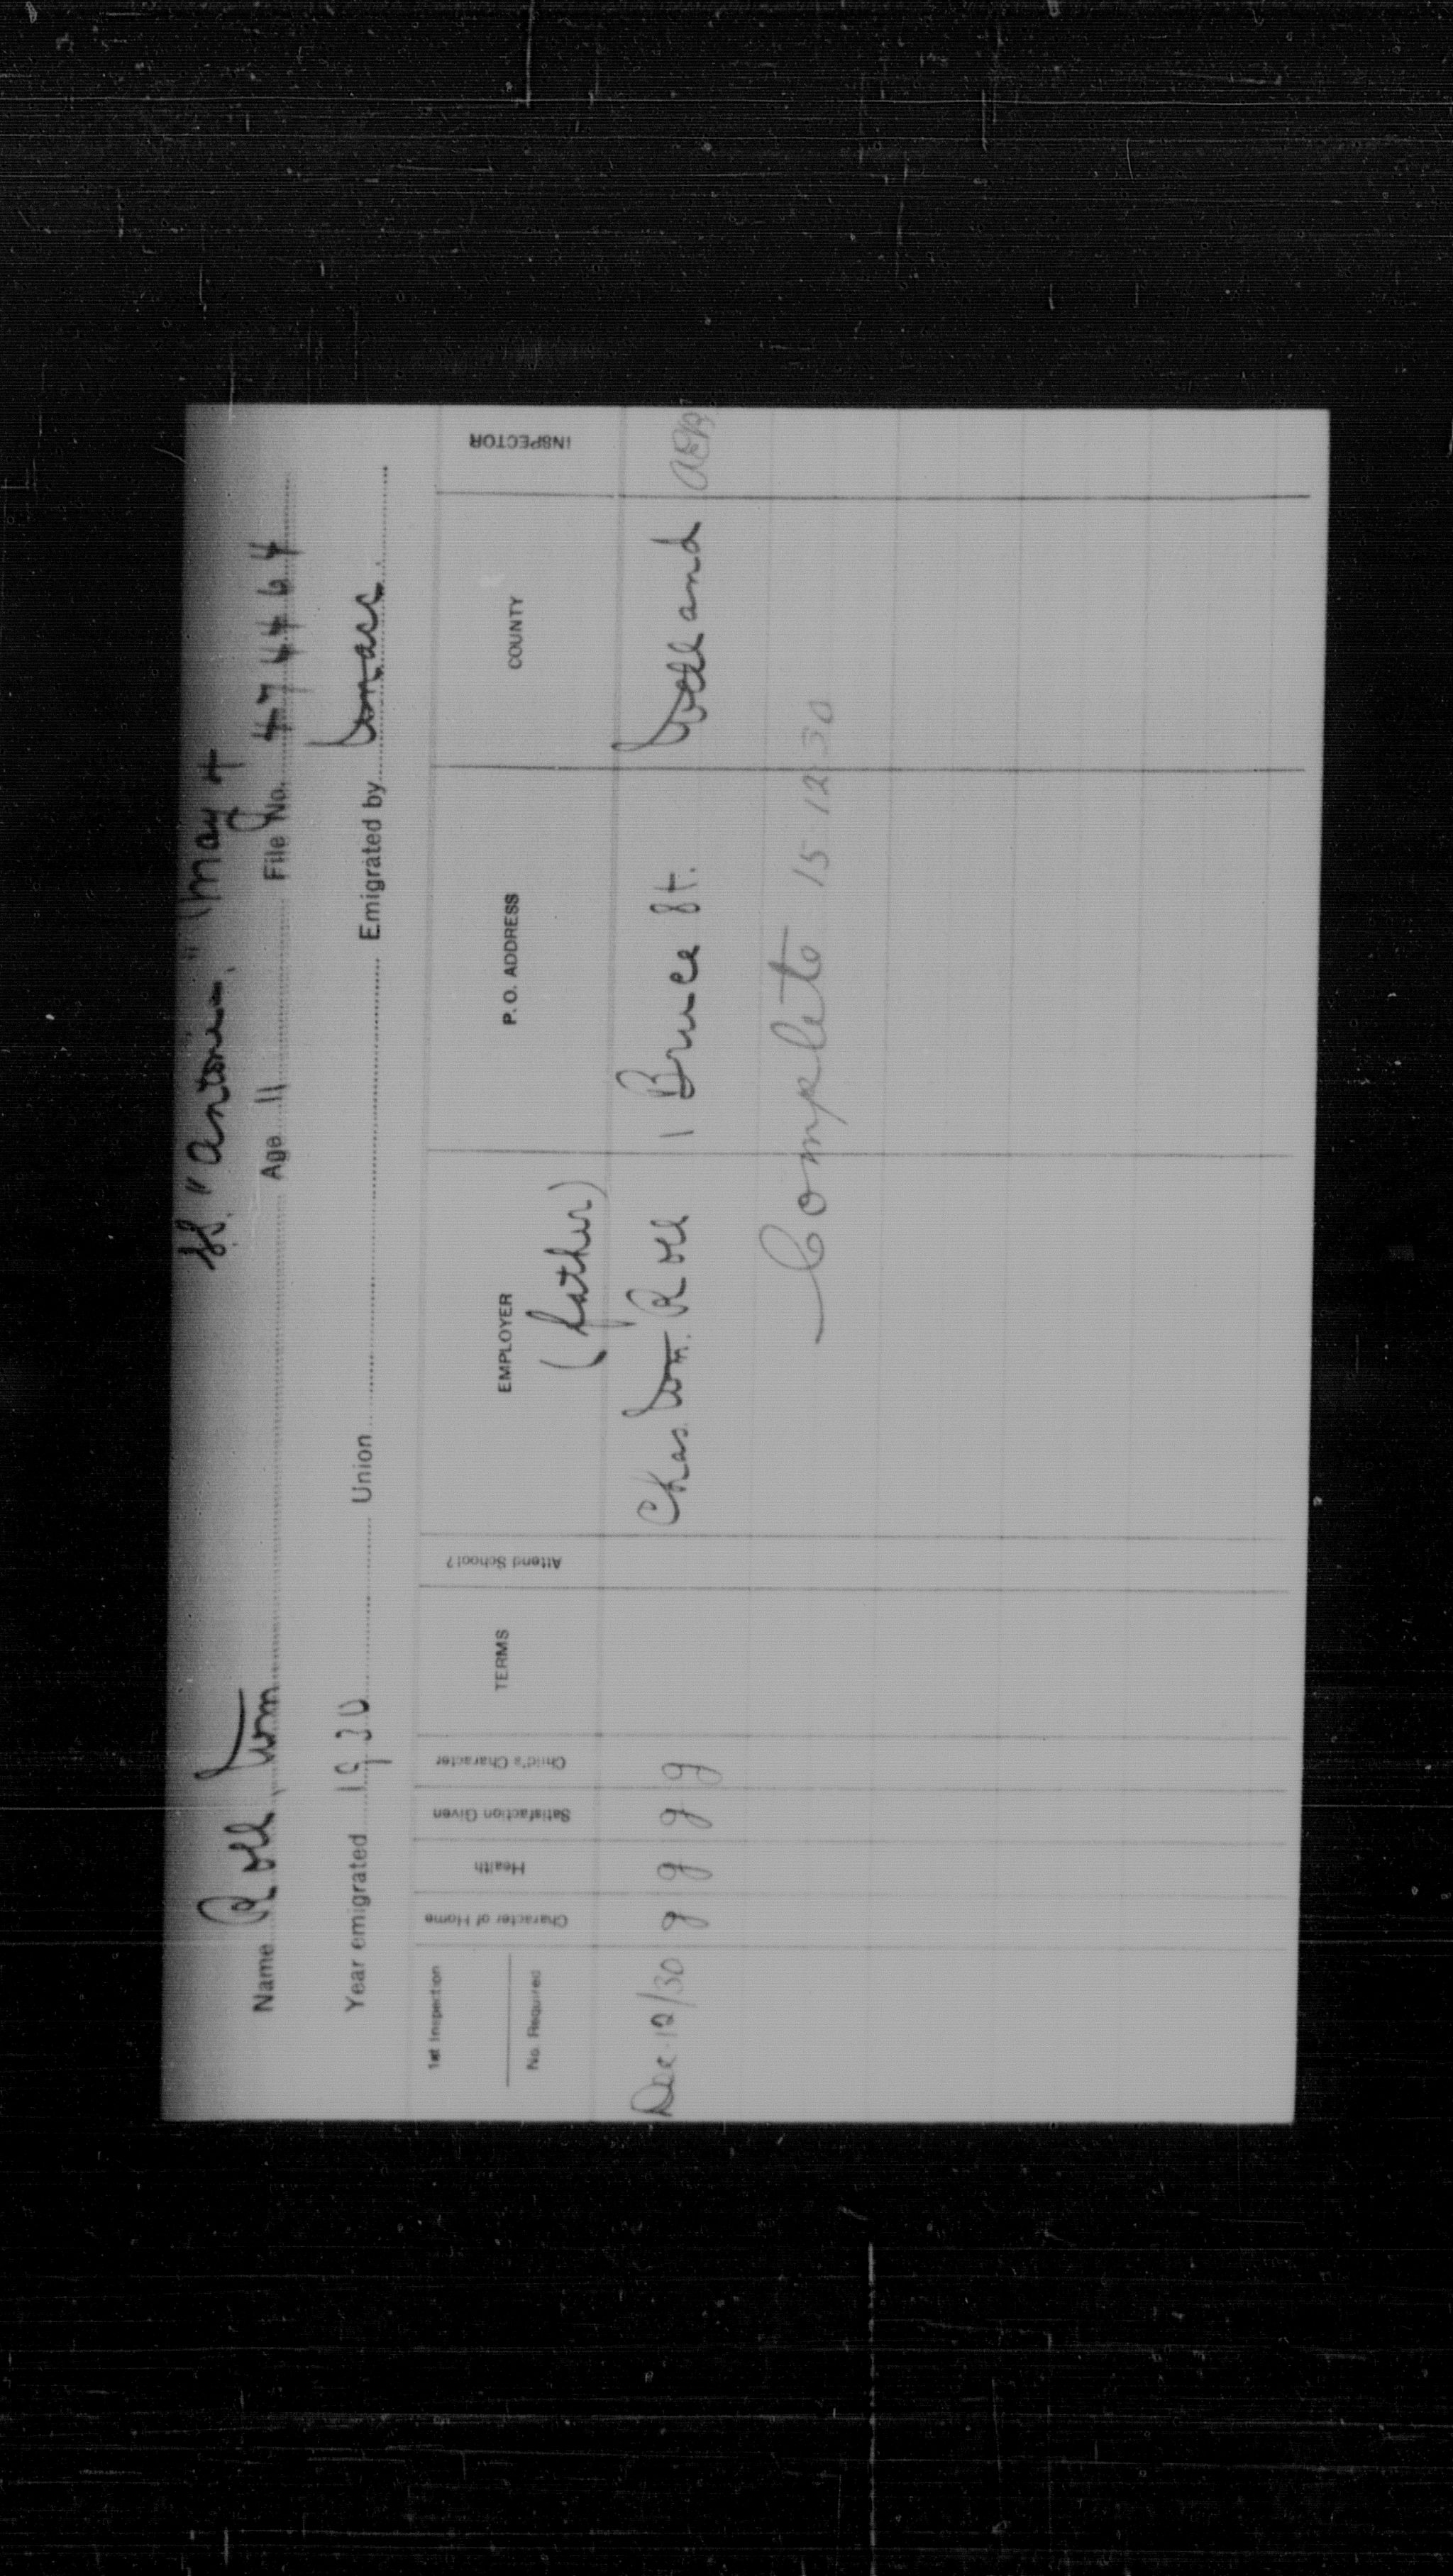 SS. "Antonia" May 4
Name Roll, Wm Age 11 File No. 474464
Year emigrated 1930 Union Emigrated by
1st Inspection
No. Required Character of Home Health Satisfaction Given Child's Character TERMS Attend School? EMPLOYER P. O. ADDRESS COUNTY INSPECTOR
(father)
Dec. 12/30 g g g g Chas. Wm. Roll 1 Bruce St. Welland AEB
Complete 15 12 30